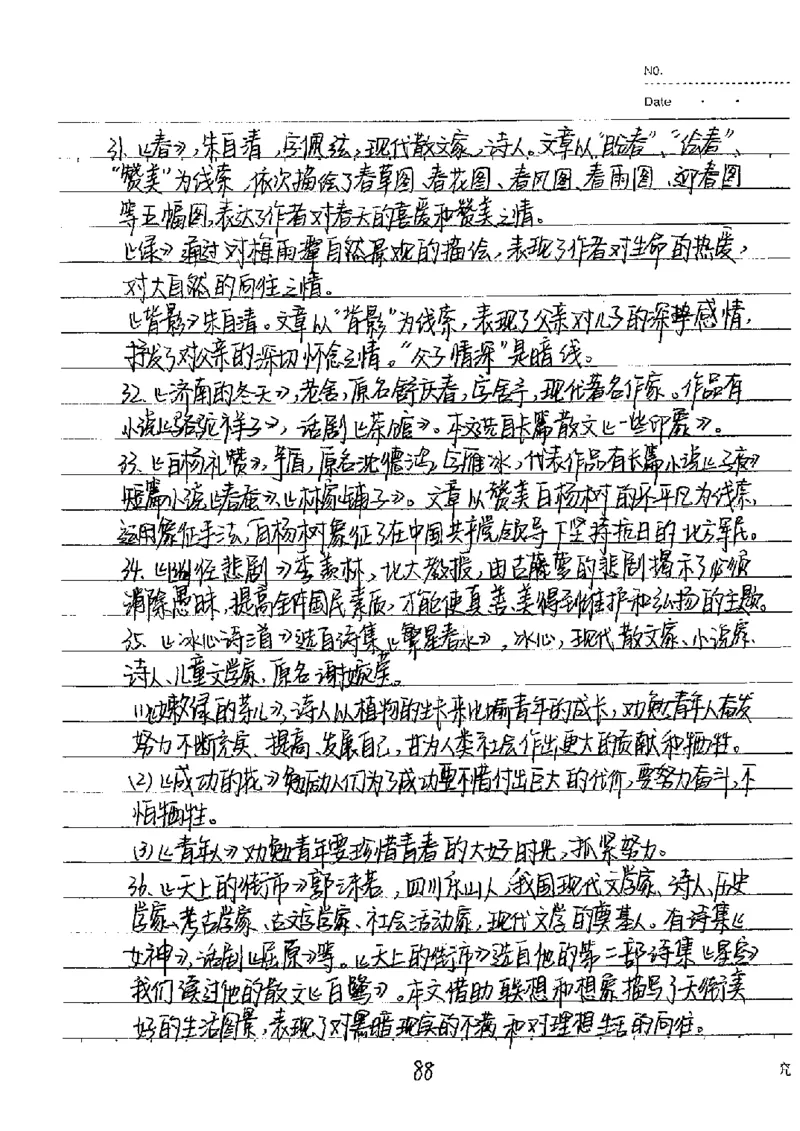 NO.
Date
31.《春》,朱自清,字佩弦,现代散文家,诗人。文章以“盼春”、“绘春”、
“赞美”为线索,依次描绘了春草图、春花图、春风图、春雨图、迎春图
等五幅图,表达了作者对春天的喜爱和赞美之情。
《绿》通过对梅雨潭自然景观的描绘,表现了作者对生命的热爱,
对大自然的向往之情。
《背影》朱自清。文章以“背影”为线索,表现了父亲对儿子的深挚感情,
抒发了对父亲的深切怀念之情。“父子情深”是暗线。
32.《济南的冬天》,老舍,原名舒庆春,字舍予,现代著名作家。作品有
小说《骆驼祥子》,话剧《茶馆》。本文选自长篇散文《一些印象》。
33.《白杨礼赞》,茅盾,原名沈德鸿,字雁冰,代表作品有长篇小说《子夜》
短篇小说《春蚕》、《林家铺子》。文章以赞美白杨树的不平凡为线索,
运用象征手法,白杨树象征了在中国共产党领导下坚持抗日的北方军民。
34.《幽径悲剧》季羡林,北大教授,由古藤萝的悲剧揭示了必须
消除愚昧,提高全体国民素质,才能使真、善、美得到维护和弘扬的主题。
35.《冰心诗三首》选自诗集《繁星春水》,冰心,现代散文家、小说家、
诗人、儿童文学家,原名谢婉莹。
(1)《嫩绿的芽儿》,诗人以植物的生长来比喻青年的成长,劝勉青年人奋发
努力不断充实、提高、发展自己,甘为人类社会作出更大的贡献和牺牲。
(2)《成功的花》勉励人们为了成功要不惜付出巨大的代价,要努力奋斗,不
怕牺牲。
(3)《青年人》劝勉青年要珍惜青春的大好时光,抓紧努力。
36.《天上的街市》郭沫若,四川乐山人,我国现代文学家、诗人、历史
学家、考古学家、古文字学家、社会活动家,现代文学的奠基人。有诗集《
女神》,话剧《屈原》等。《天上的街市》选自他的第二部诗集《星空》
我们读过他的散文《白鹭》。本文借助联想和想象描写了天街美
好的生活图景,表现了对黑暗现实的不满和对理想生活的向往。
88